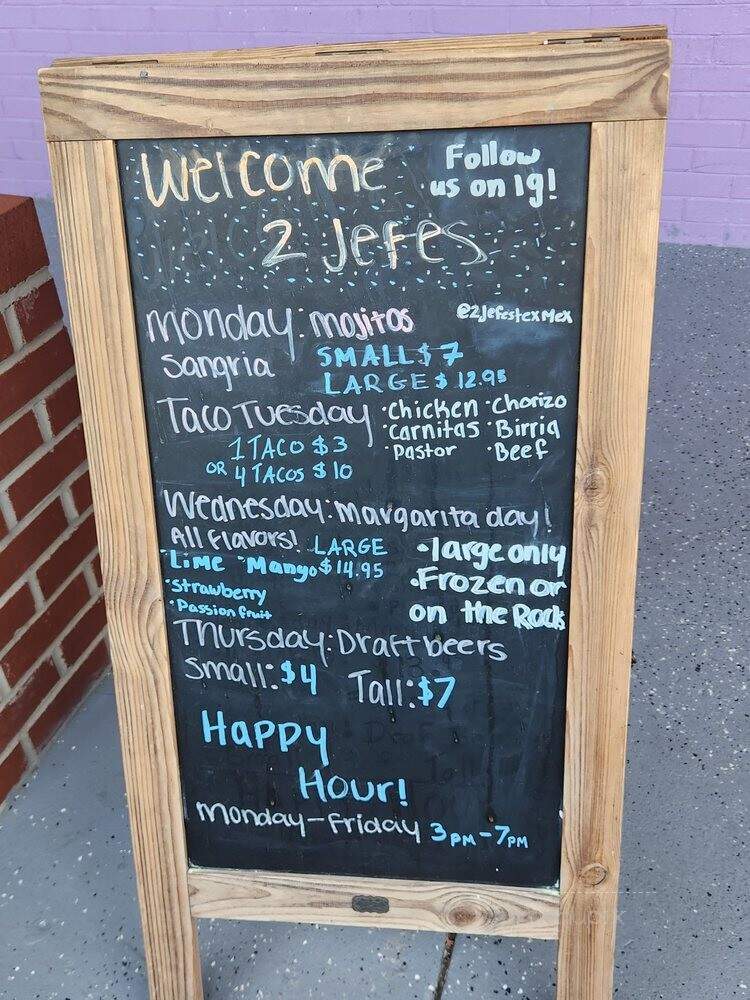 Welcome
2 Jefes
Follow
us on Ig!
Monday: Mojitos
Sangria
SMALL $7
LARGE $12.95
@2JefestexMex
Taco Tuesday
1 TACO $3
OR 4 TACOS $10
·Chicken ·Chorizo
·Carnitas ·Birria
·Pastor ·Beef
Wednesday: Margarita day!
All Flavors! LARGE
·Lime ·Mango $14.95
·Strawberry
·Passion fruit
·large only
·Frozen or
on the Rocks
Thursday: Draft beers
Small: $4 Tall: $7
Happy
Hour!
Monday-Friday 3PM-7PM